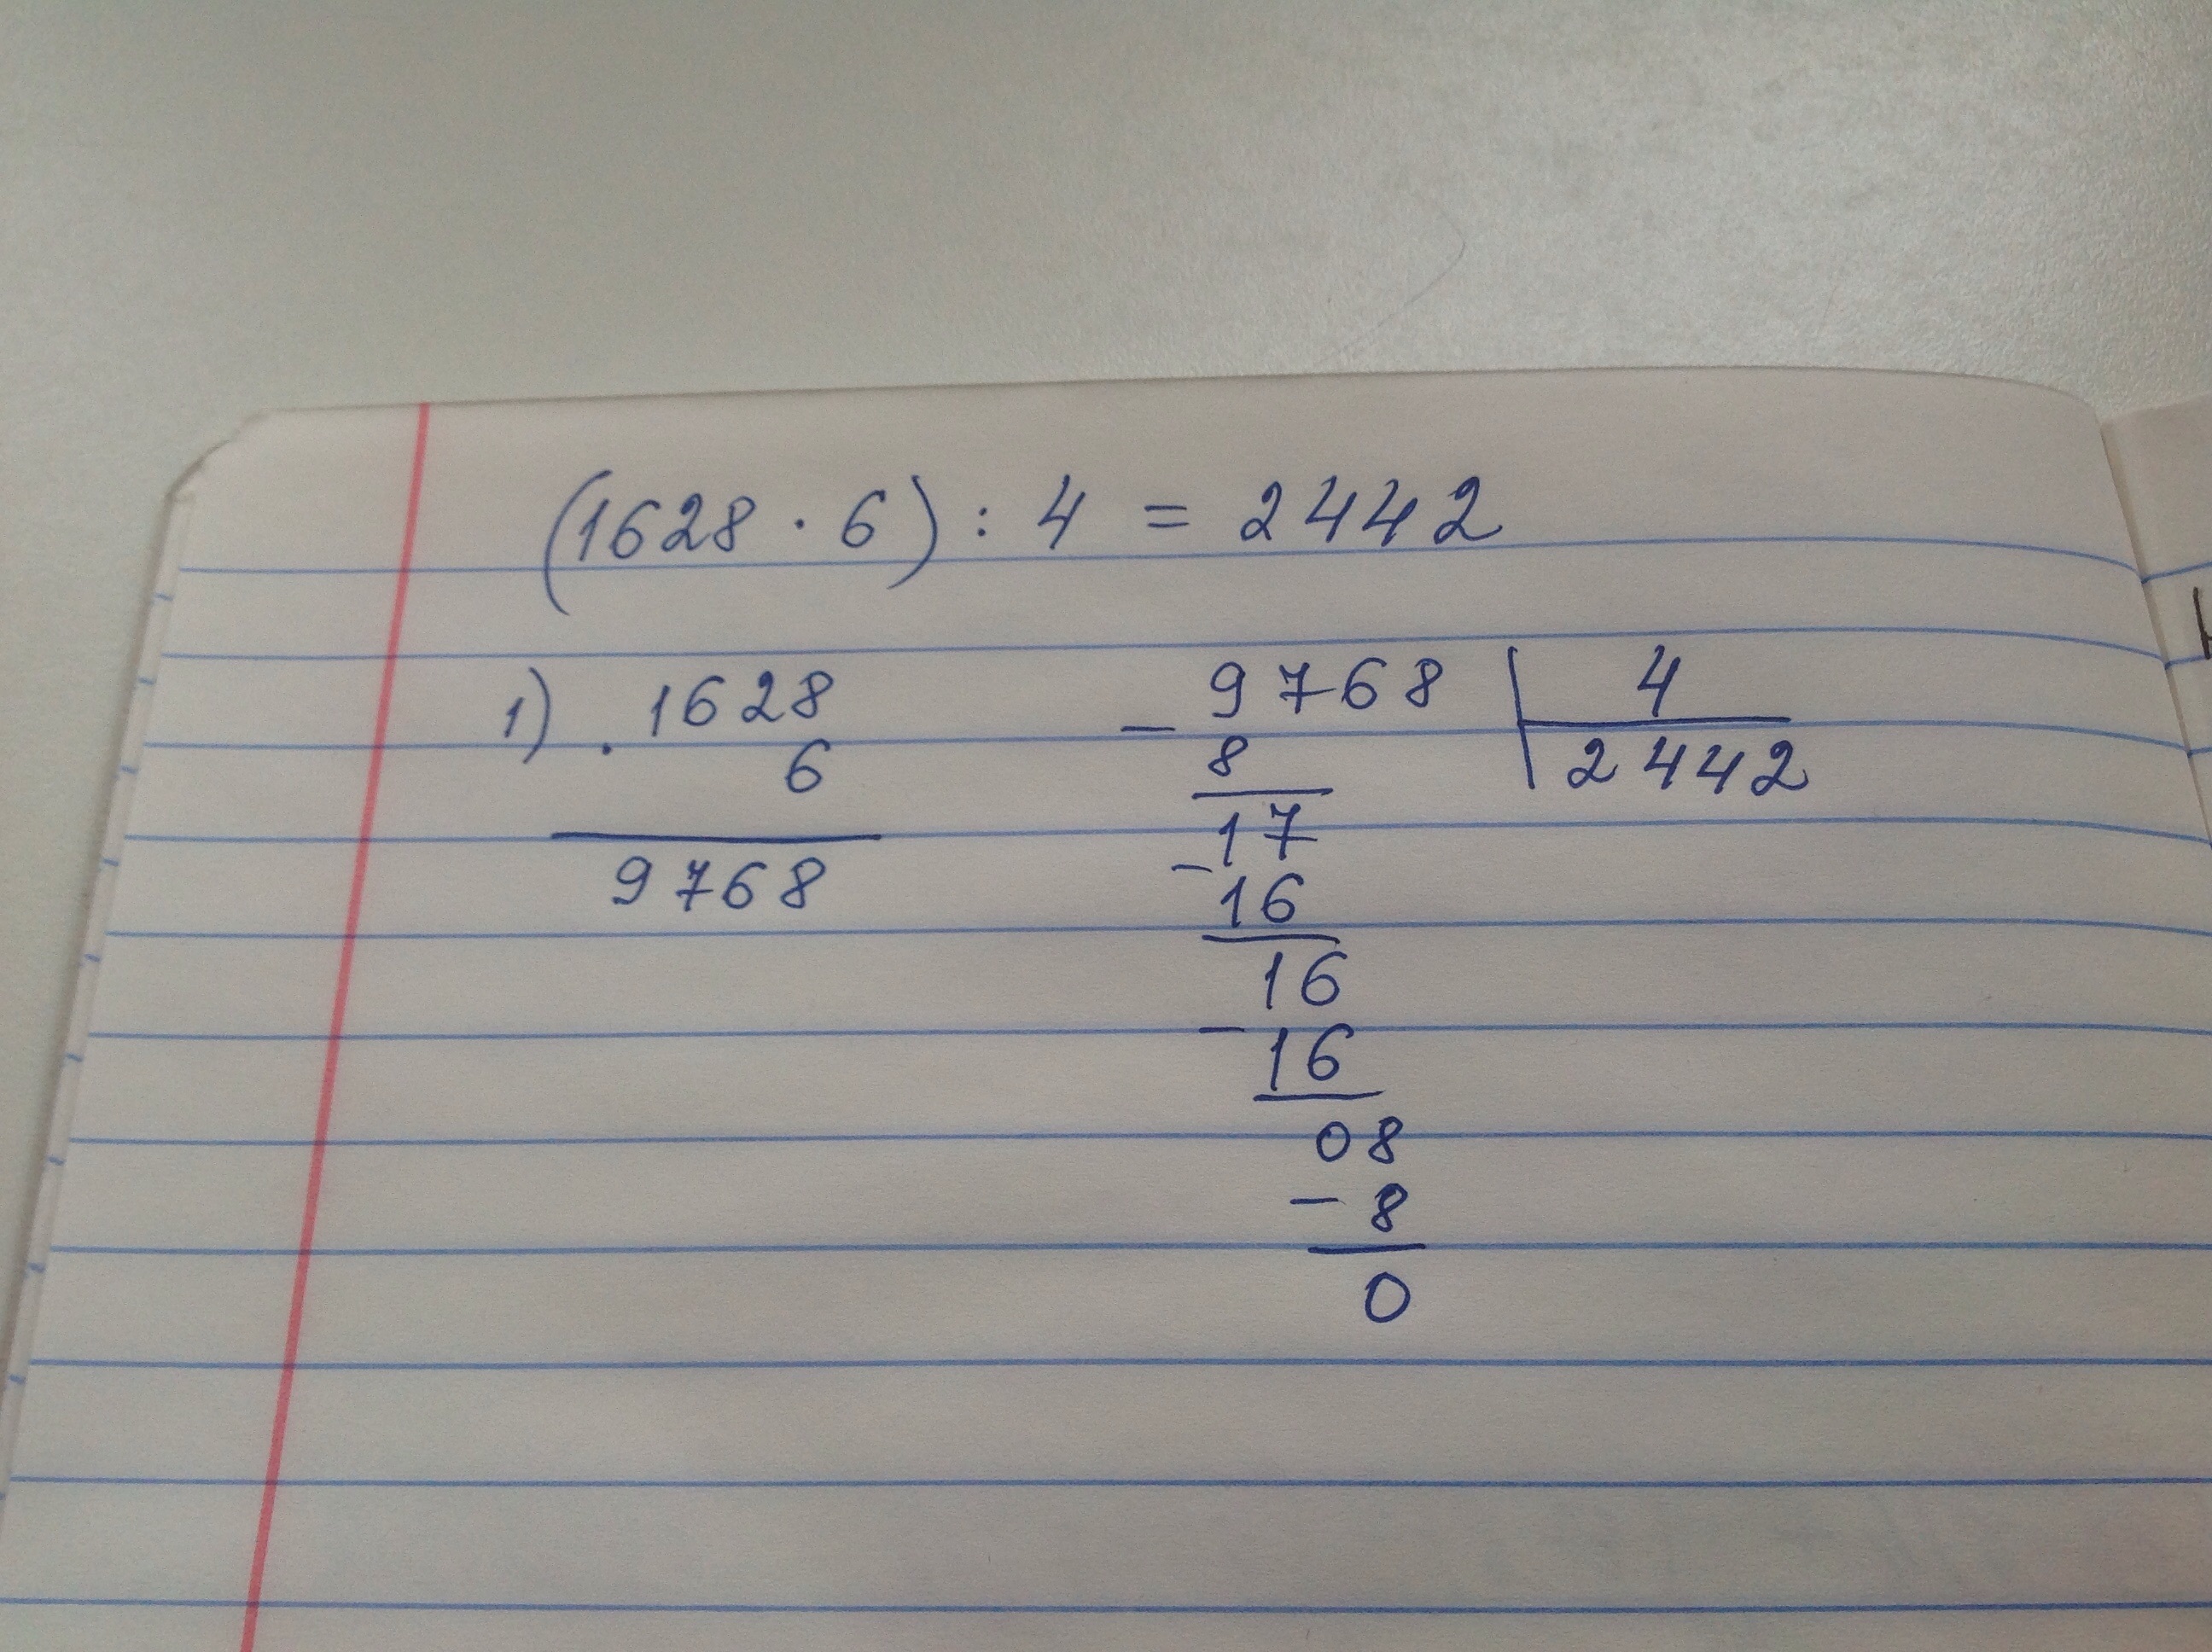 (1628 · 6) : 4 = 2442
1) · 1628
6
9768
- 9768 | 4
8 2442
17
- 16
16
- 16
08
- 8
0